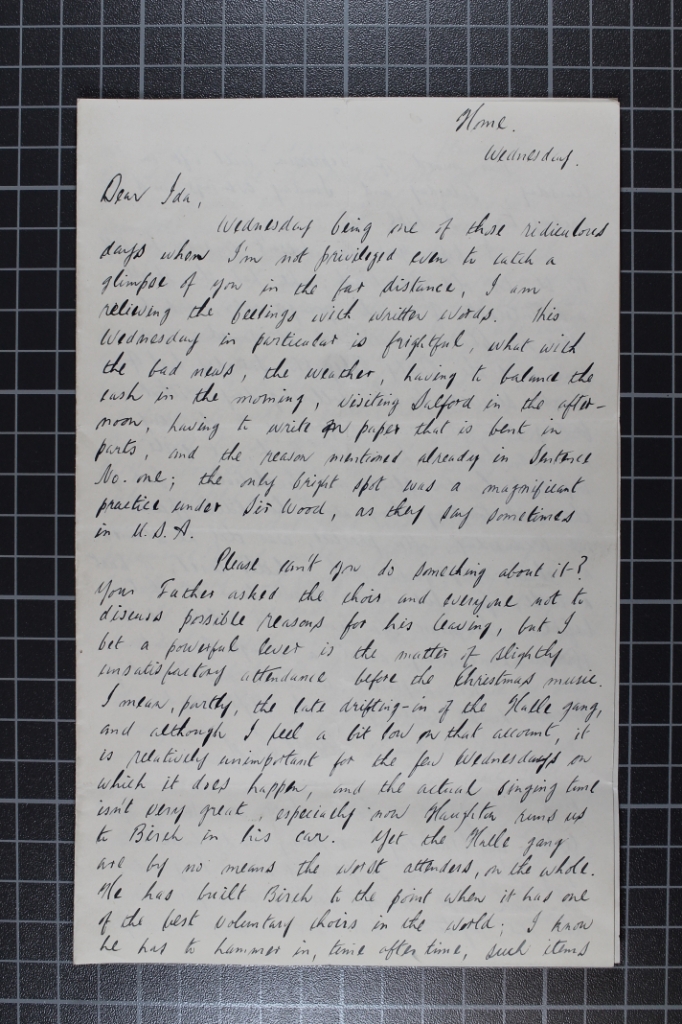 Home.
Wednesday.
Dear Ida,
Wednesday being one of those ridiculous
days when I'm not privileged even to catch a
glimpse of you in the far distance, I am
relieving the feelings with written words. This
Wednesday in particular is frightful, what with
the bad news, the weather, having to balance the
cash in the morning, visiting Salford in the after-
noon, having to write on paper that is bent in
parts, and the reason mentioned already in Sentence
No. one; the only bright spot was a magnificent
practice under Sir Wood, as they say sometimes
in U.S.A.
Please can't you do something about it?
Your Father asked the choir and everyone not to
discuss possible reasons for his leaving, but I
bet a powerful lever is the matter of slightly
unsatisfactory attendance before the Christmas music.
I mean, partly, the late drifting-in of the Halle gang,
and although I feel a bit low on that account, it
is relatively unimportant for the few Wednesdays on
which it does happen, and the actual singing time
isn't very great, especially now Haughton runs us
to Birch in his car. Yet the Halle gang
are by no means the worst attenders, on the whole.
He has built Birch to the point when it has one
of the best voluntary choirs in the world; I know
he has to hammer in, time after time, such items